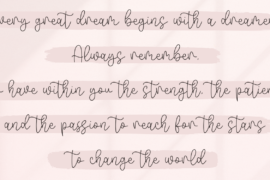 very great dream begins with a dreamer
Always remember,
have within you the strength, the patien
and the passion to reach for the stars
to change the world